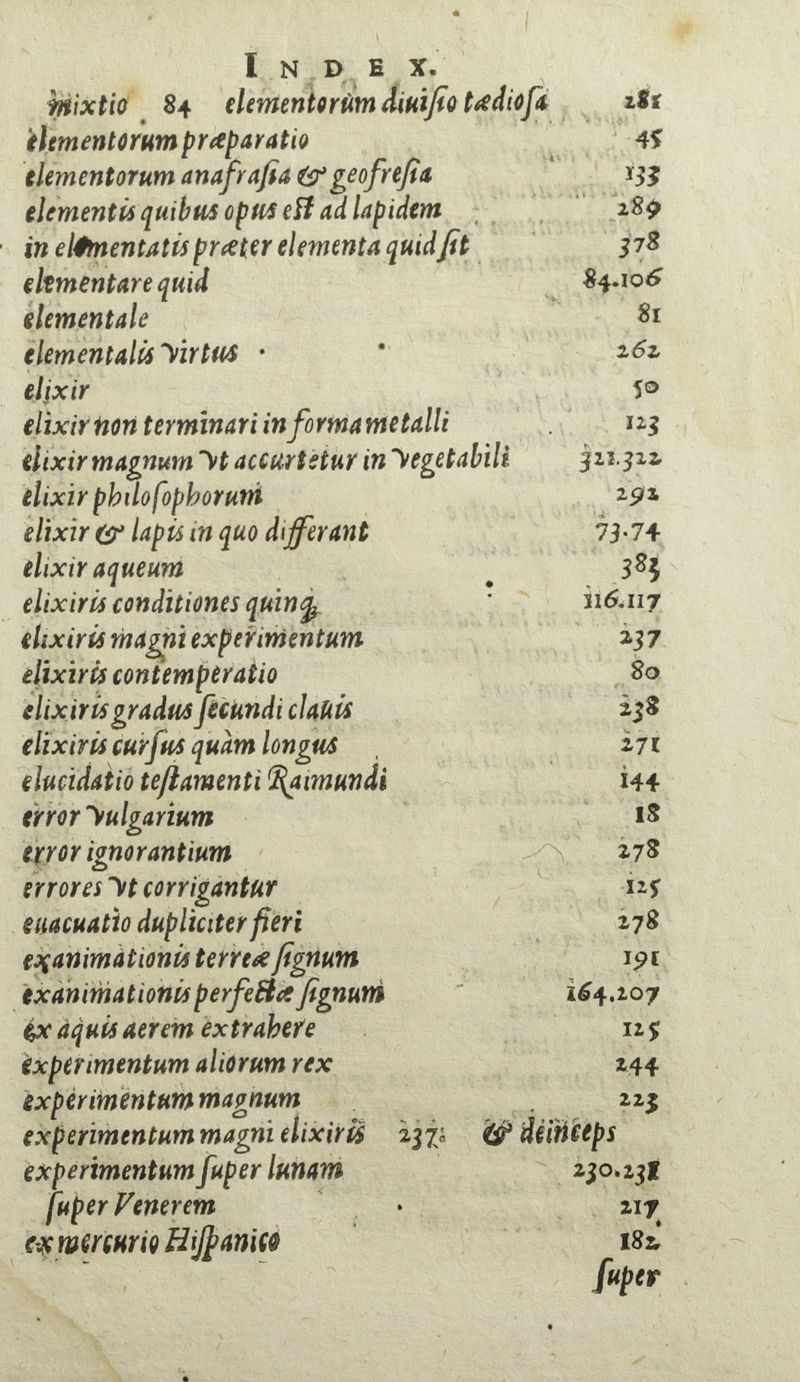 INDEX.
mixtio 84 elementorum diuiſio tædioſa 281
elementorum præparatio 45
elementorum anafraſia & geofreſia 133
elementis quibus opus eſt ad lapidem 289
in elementatis præter elementa quid ſit 378
elementare quid 84.106
elementale 81
elementalis virtus 262
elixir 50
elixir non terminari in forma metalli 123
elixir magnum vt accurtetur in vegetabili 321.322
elixir philoſophorum 292
elixir & lapis in quo differant 73.74
elixir aqueum 383
elixiris conditiones quinq; 116.117
elixiris magni experimentum 237
elixiris contemperatio 80
elixiris gradus ſecundi clauis 238
elixiris curſus quàm longus 271
elucidatio teſtamenti Raimundi 144
error vulgarium 18
error ignorantium 278
errores vt corrigantur 125
euacuatio dupliciter fieri 278
exanimationis terreæ ſignum 191
exanimationis perfectæ ſignum 164.207
ex aquis aerem extrahere 125
experimentum aliorum rex 244
experimentum magnum 223
experimentum magni elixiris 237. & deinceps
experimentum ſuper lunam 230.231
ſuper Venerem 217
ex mercurio Hiſpanico 182
ſuper